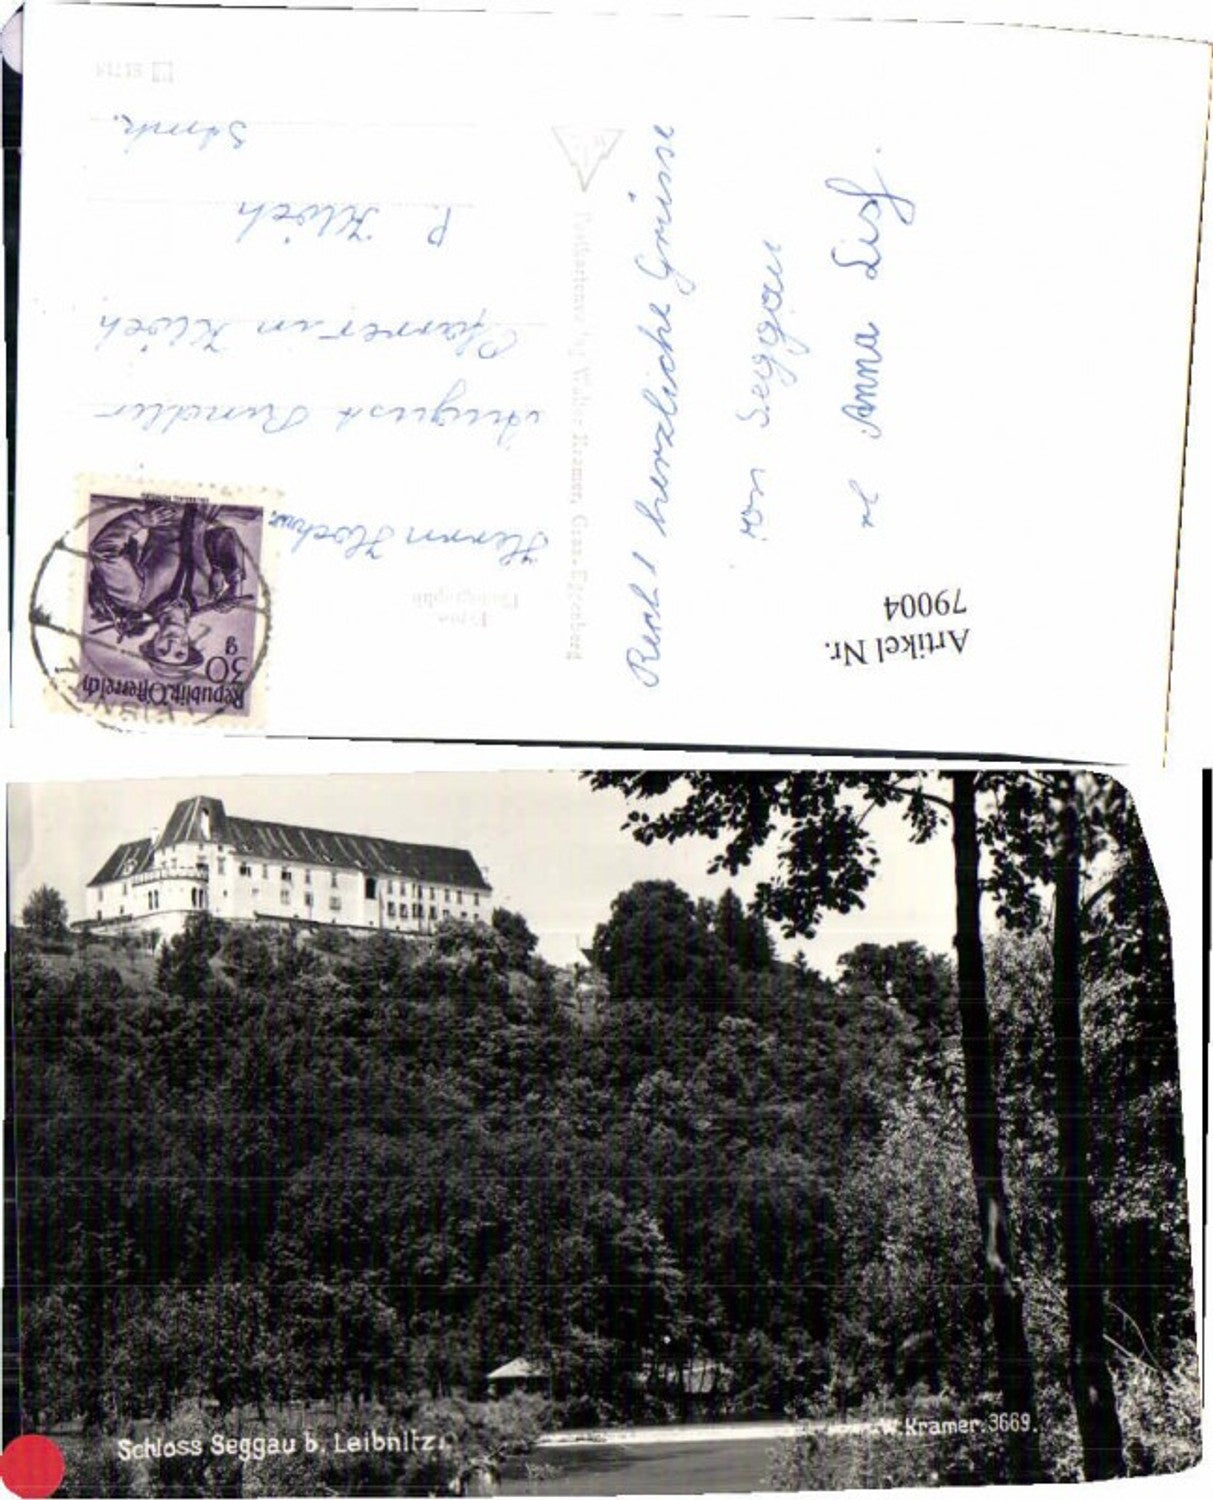 Artikel Nr.
79004
Recht herzliche Grüsse
von Seggau
Anna Lisl
Postkartenverlag Walter Kramer, Graz-Eggenberg
Photographie
Republik Österreich
30
g
Herrn Hochw.
August Rindler
Pfarrer in Klöch
P. Klöch
Stmk.
Schloss Seggau b. Leibnitz.
W.Kramer.3669.